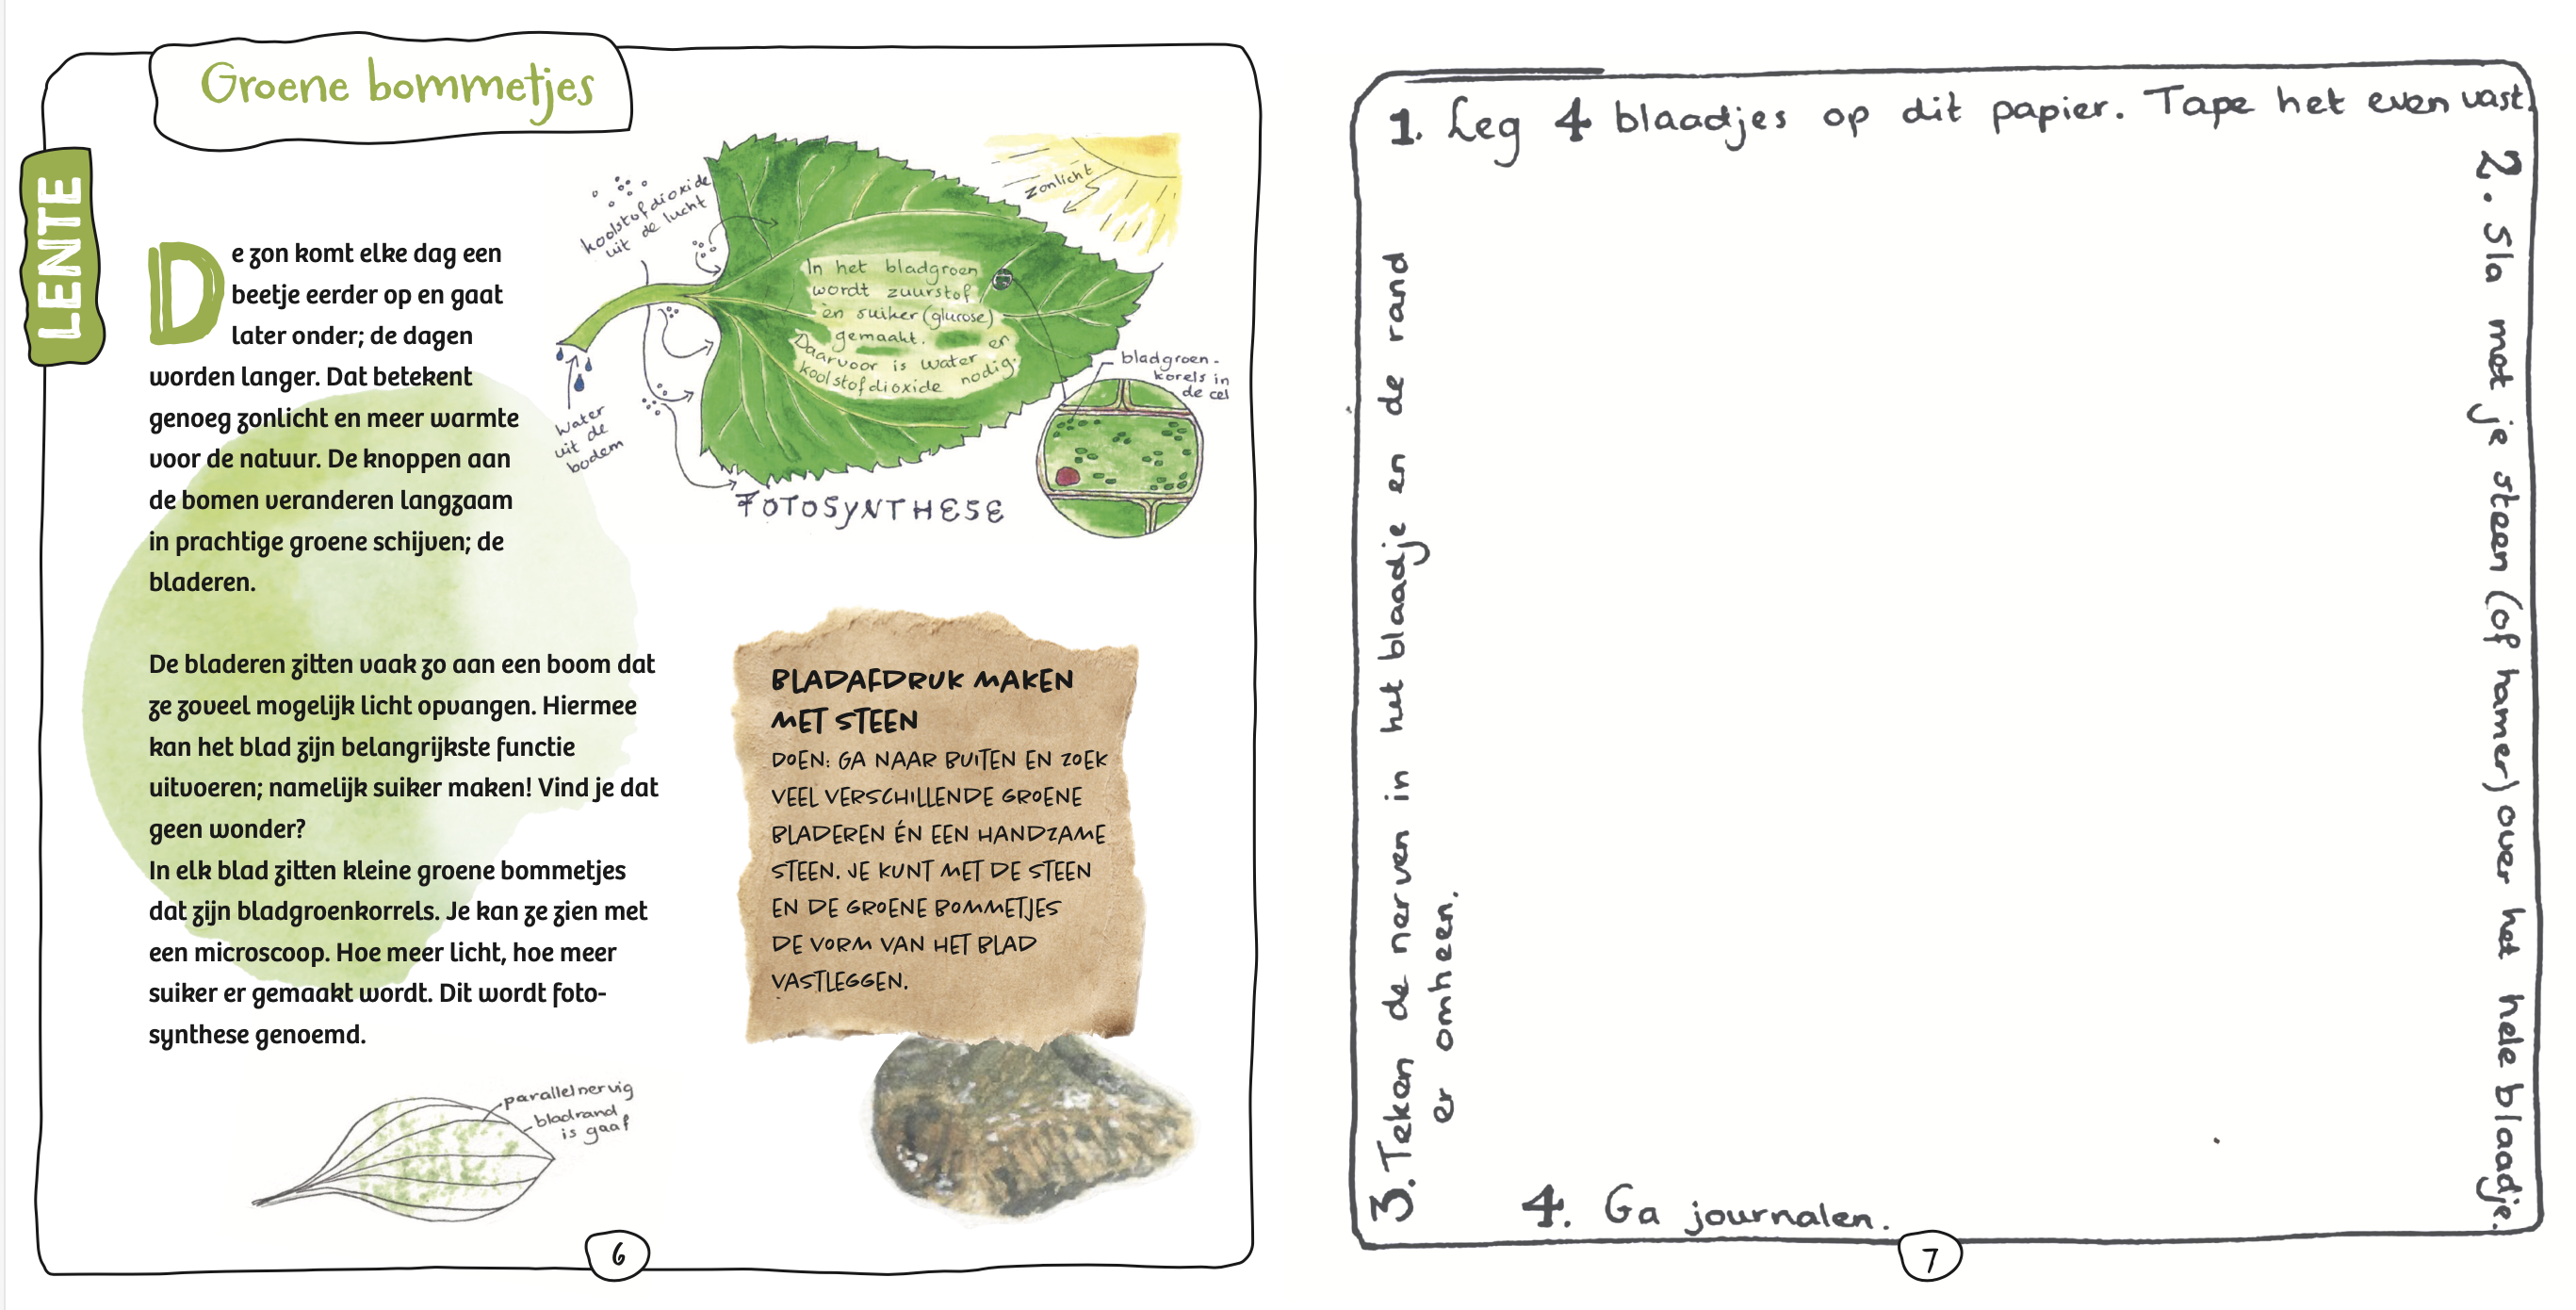 Groene bommetjes
LENTE
De zon komt elke dag een
beetje eerder op en gaat
later onder; de dagen
worden langer. Dat betekent
genoeg zonlicht en meer warmte
voor de natuur. De knoppen aan
de bomen veranderen langzaam
in prachtige groene schijven; de
bladeren.
De bladeren zitten vaak zo aan een boom dat
ze zoveel mogelijk licht opvangen. Hiermee
kan het blad zijn belangrijkste functie
uitvoeren; namelijk suiker maken! Vind je dat
geen wonder?
In elk blad zitten kleine groene bommetjes
dat zijn bladgroenkorrels. Je kan ze zien met
een microscoop. Hoe meer licht, hoe meer
suiker er gemaakt wordt. Dit wordt foto-
synthese genoemd.
koolstofdioxide
uit de lucht
zonlicht
In het bladgroen
wordt zuurstof
èn suiker (glucose)
gemaakt. en
Daarvoor is water
koolstofdioxide nodig.
bladgroen-
korels in
de cel
water
uit de
bodem
FOTOSYNTHESE
BLADAFDRUK MAKEN
MET STEEN
DOEN: GA NAAR BUITEN EN ZOEK
VEEL VERSCHILLENDE GROENE
BLADEREN ÉN EEN HANDZAME
STEEN. JE KUNT MET DE STEEN
EN DE GROENE BOMMETJES
DE VORM VAN HET BLAD
VASTLEGGEN.
parallelnervig
bladrand
is gaaf
6
1. Leg 4 blaadjes op dit papier. Tape het even vast.
2. Sla met je steen (of hamer) over het hele blaadje.
3. Teken de nerven in het blaadje en de rand
er omheen.
4. Ga journalen.
7